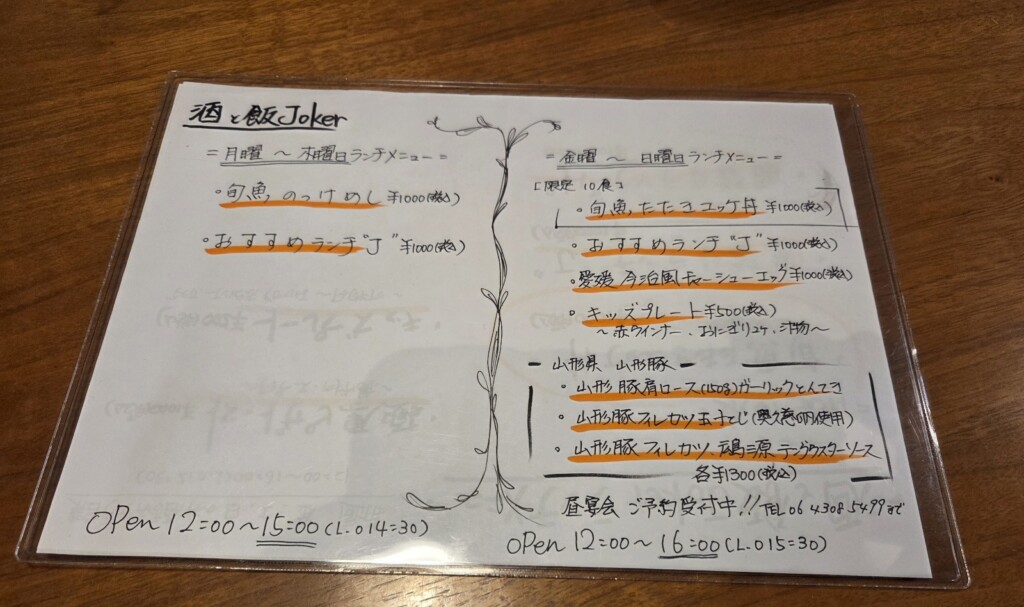 酒と飯Joker
=月曜 ～ 木曜日ランチメニュー=
・旬魚のっけめし ¥1000(税込)
・おすすめランチ"J" ¥1000(税込)
OPen 12:00～15:00(L.O14:30)
=金曜 ～ 日曜日ランチメニュー=
[限定10食]
・旬魚たたきユッケ丼 ¥1000(税込)
・おすすめランチ"J" ¥1000(税込)
・愛媛今治風チャーシューエッグ¥1000(税込)
・キッズプレート¥500(税込)
～赤ウインナー、おにぎり2ケ、汁物～
山形県 山形豚
・山形豚肩ロース(150g)ガーリックとんてき
・山形豚フィレカツ玉子とじ(奥久慈の卵使用)
・山形豚フィレカツ 鶴三原テングウスターソース
各¥1300(税込)
昼宴会 ご予約受付中!!TEL06 4308 5499まで
OPen 12:00～16:00(L.O15:30)